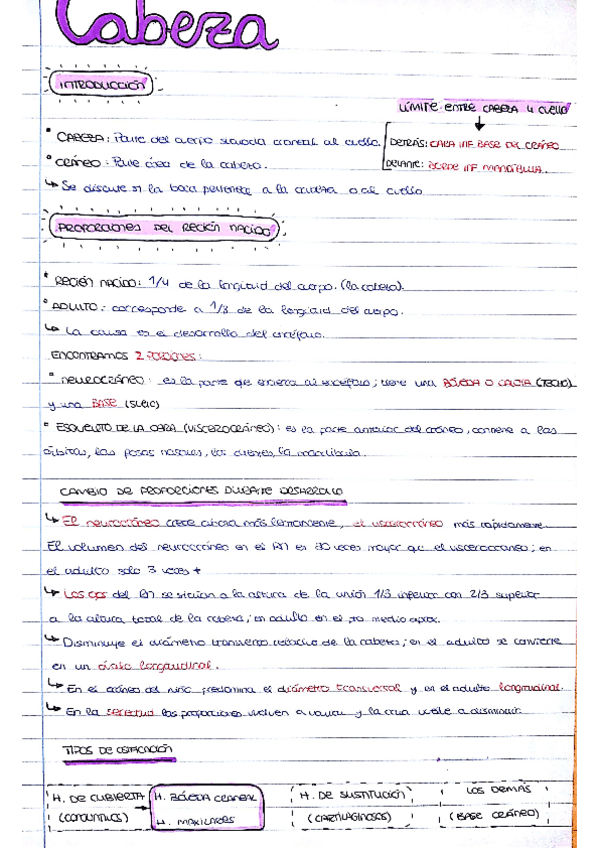 Cabeza
INTRODUCCIÓN
LÍMITE ENTRE CABEZA Y CUELLO
• CABEZA: Parte del cuerpo situada craneal al cuello.
DETRÁS: CARA INF BASE DEL CRÁNEO
• CRÁNEO: Parte ósea de la cabeza.
DELANTE: BORDE INF MANDÍBULA.
↳ Se discute si la boca pertenece a la cabeza o al cuello
PROPORCIONES DEL RECIÉN NACIDO
• RECIÉN NACIDO: 1/4 de la longitud del cuerpo. (la cabeza).
• ADULTO: corresponde a 1/8 de la longitud del cuerpo.
↳ La causa es el desarrollo del encéfalo.
ENCONTRAMOS 2 :
• NEUROCRÁNEO: es la parte que encierra al encéfalo; tiene una BÓVEDA O CALOTA (TECHO)
y una BASE (SUELO)
• ESQUELETO DE LA CARA (VISCEROCRÁNEO): es la parte anterior del cráneo, contiene a las
órbitas, las fosas nasales, los dientes, la mandíbula.
CAMBIO DE PROPORCIONES DURANTE DESARROLLO
↳ El neurocráneo crece ahora más lentamente, el viscerocráneo más rápidamente.
El volumen del neurocráneo en el RN es veces mayor que el viscerocráneo; en
el adulto solo 3 veces +
↳ Los ojos del RN se sitúan a la altura de la unión 1/3 inferior con 2/3 superior
a la altura total de la cabeza; en adulto en el pto medio aprox.
↳ Disminuye el diámetro transverso relativo de la cabeza; en el adulto se convierte
en un óvalo longitudinal.
↳ En el cráneo del niño predomina el diámetro transversal y en el adulto longitudinal.
↳ En la senectud las proporciones vuelven a variar y la cara vuelve a disminuir.
TIPOS DE OSIFICACIÓN
H. DE CUBIERTA
(CONJUNTIVOS)
H. BÓVEDA CRANEAL
H. MAXILARES
H. DE SUSTITUCIÓN
(CARTILAGINOSOS)
LOS DEMÁS
(BASE CRÁNEO)